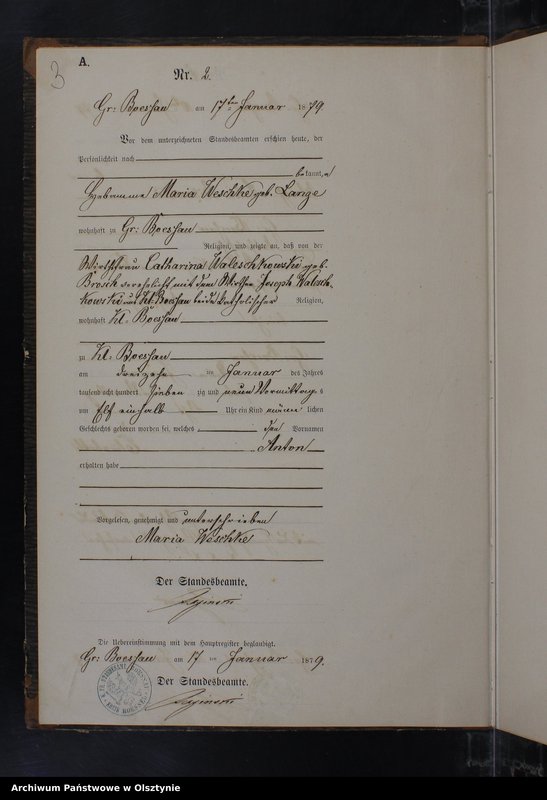 3
A.
Nr. 2.
Gr: Boessau am 17ten Januar 1879
Vor dem unterzeichneten Standesbeamten erschien heute, der
Persönlichkeit nach
bekannt, e
Hebamme Maria Weschke geb. Lange
wohnhaft zu Gr: Boessau
Religion, und zeigte an, daß von der
Wirthsfrau Catharina Waleschkowski geb.
Brosch verehelicht mit dem Wirthen Joseph Walesch-
kowski aus Kl. Boessau beide katholischer Religion,
wohnhaft Kl: Boessau
zu Kl: Boessau
am dreizehn ten Januar des Jahres
tausend acht hundert sieben zig und neun Vormittags
um Elf einhalb Uhr ein Kind männ lichen
Geschlechts geboren worden sei, welches den Vornamen
Anton
erhalten habe
Vorgelesen, genehmigt und unterschrieben
Maria Weschke
Der Standesbeamte.
Die Uebereinstimmung mit dem Hauptregister beglaubigt.
Gr: Boessau am 17 ten Januar 1879.
Der Standesbeamte.
Archiwum Państwowe w Olsztynie